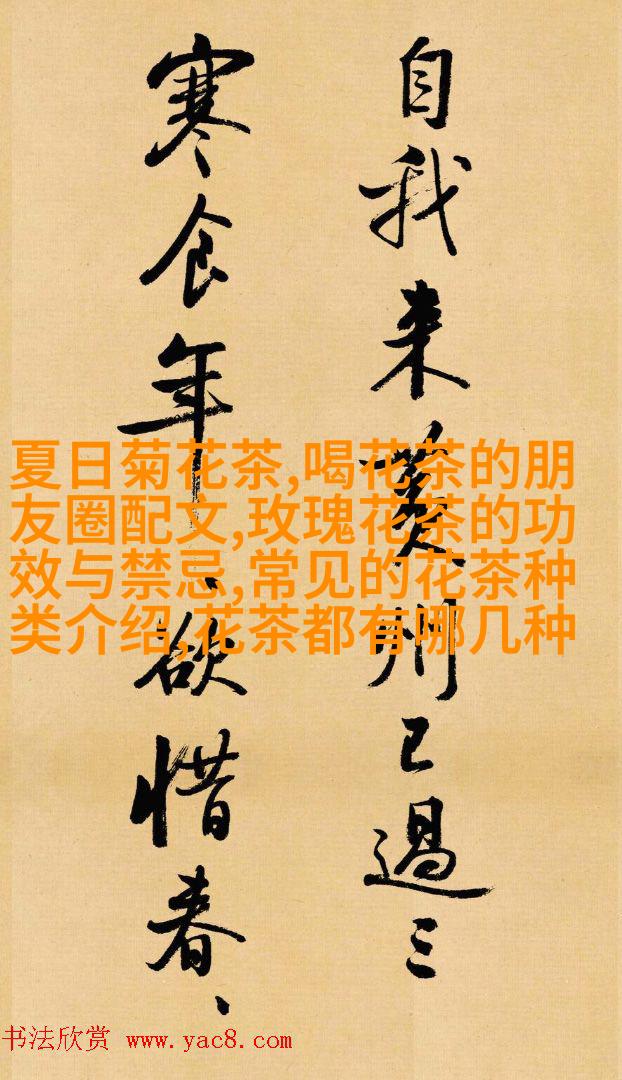 自我来黄州已過三
寒食年、欲惜春、
夏日菊花茶,喝花茶的朋
友圈配文,玫瑰花茶的功
效与禁忌,常见的花茶种
类介绍,花茶都有哪几种
书法欣赏 www.yac8.com